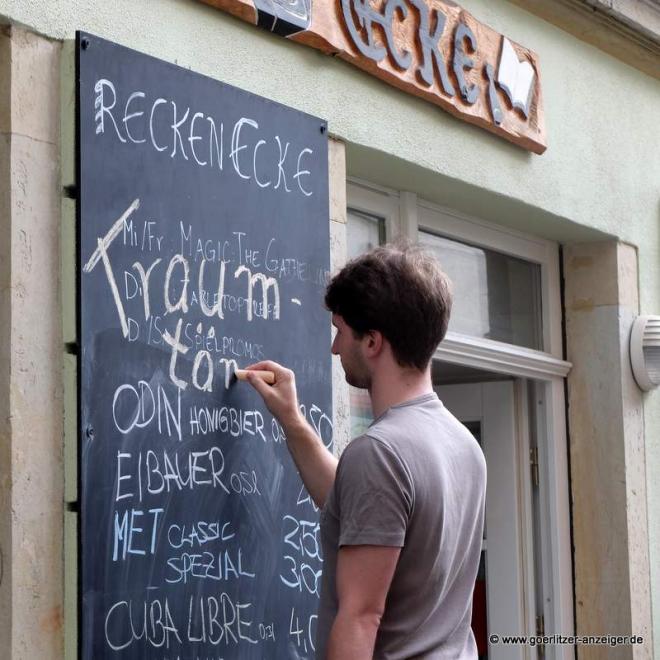 Ecke
RECKENECKE
Mi/Fr. MAGIC. THE GATHERING
Traum-
TABLETOPTREFF
D/S SPIELPROMOS
tän
ODIN HONIGBIER
EIBAUER 0,5l
MET CLASSIC 2,50
SPEZIAL 3,00
CUBA LIBRE 0,3l 4,0
© www.goerlitzer-anzeiger.de